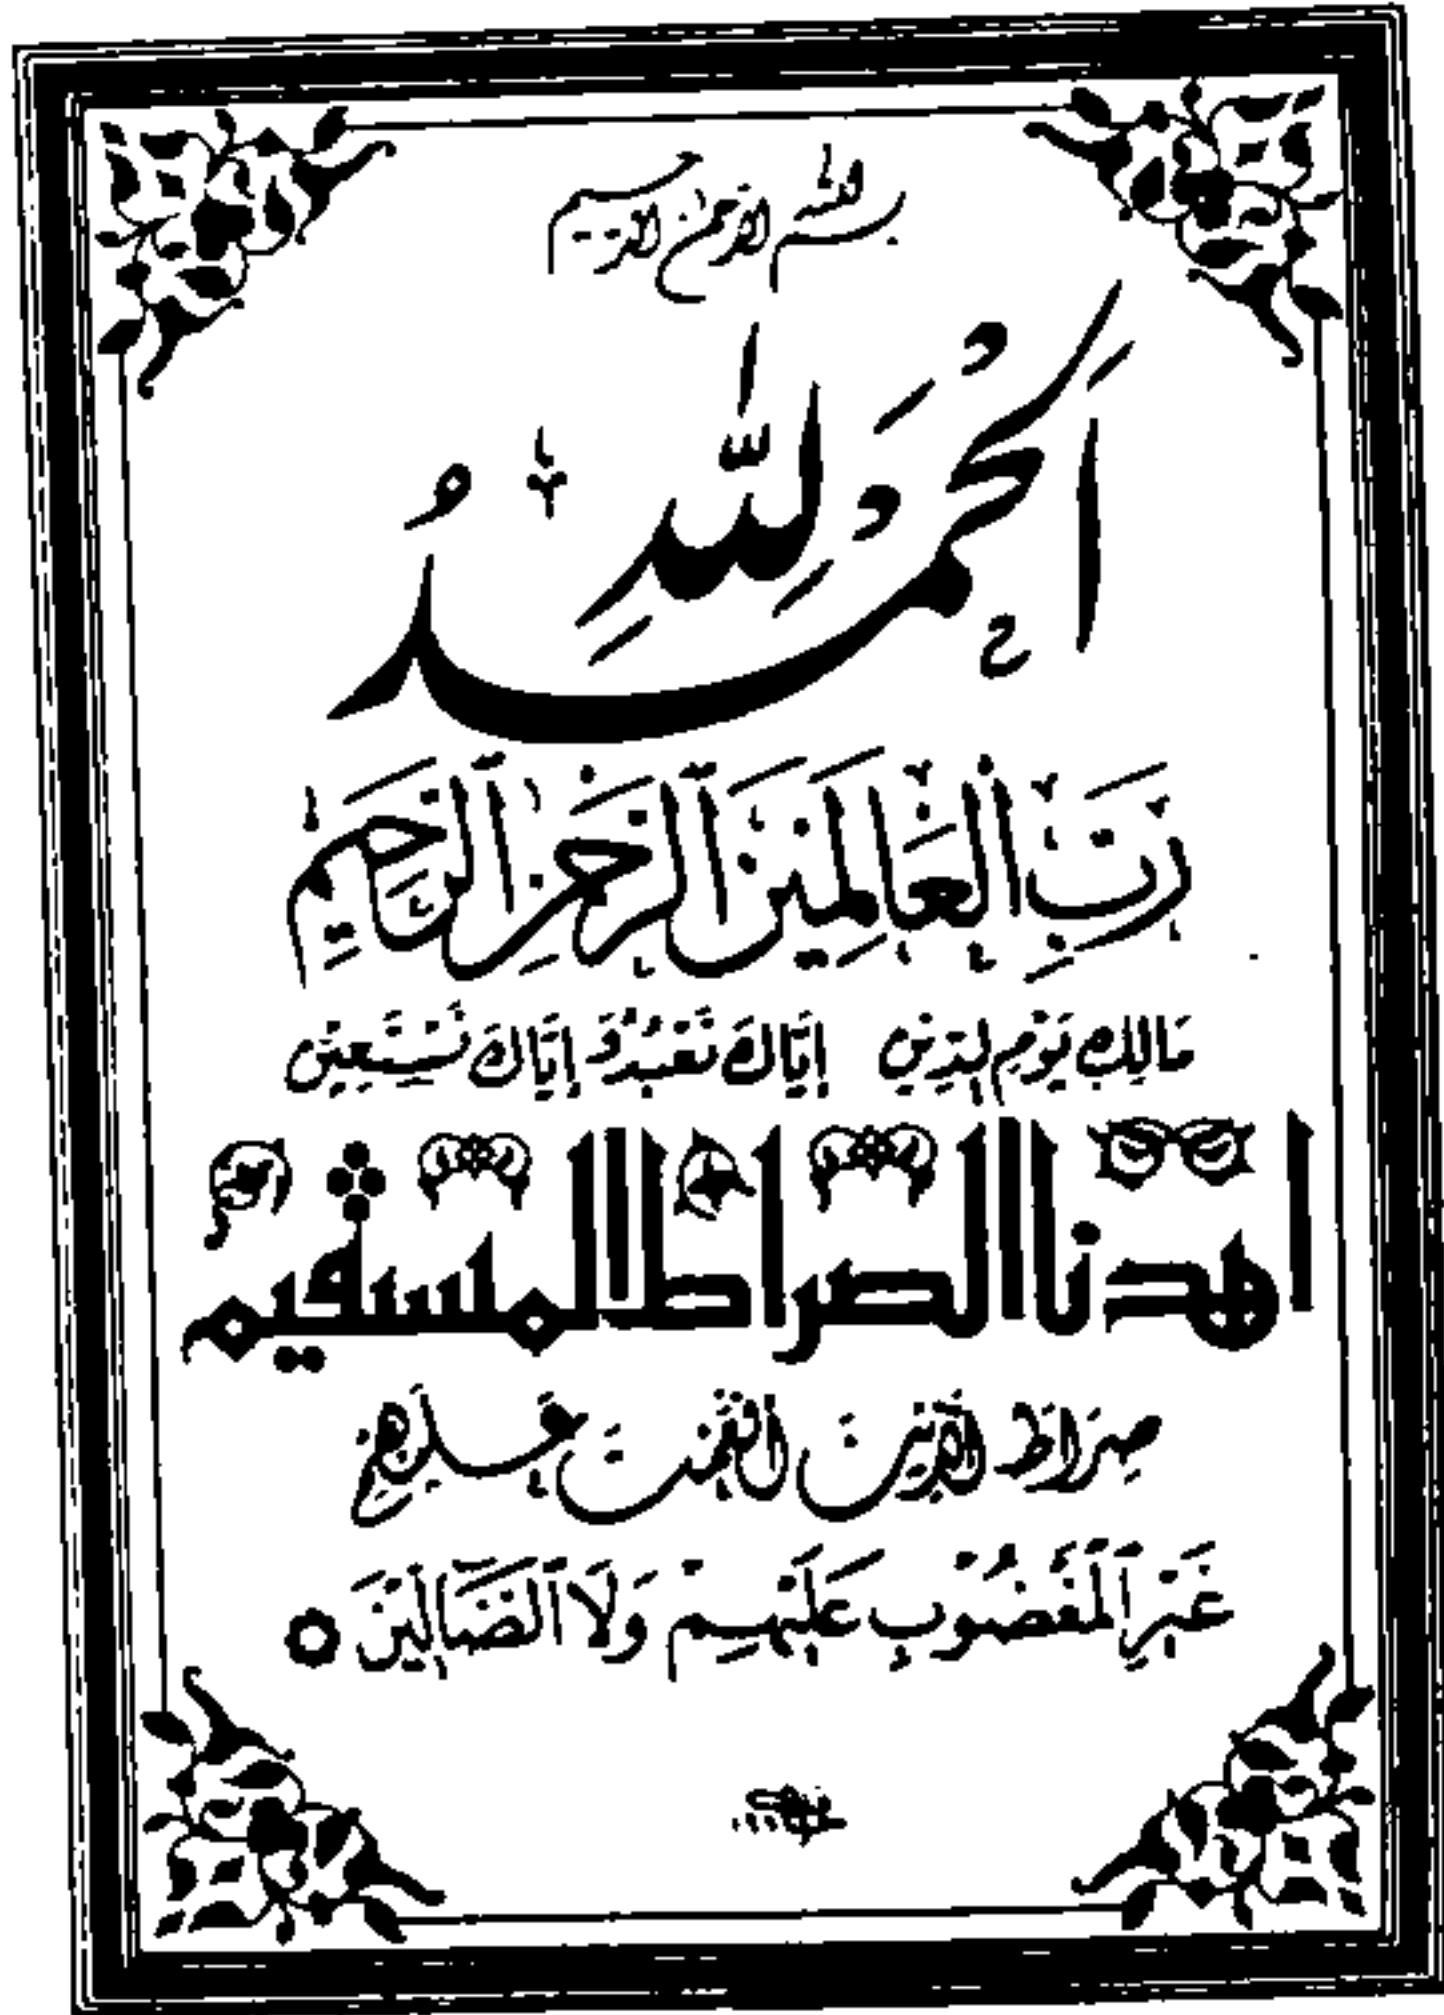 بسم الله الرحمن الرحيم
اَلْحَمْدُ لِلّٰهِ
رَبِّ الْعَالَمِينَ الرَّحْمٰنِ الرَّحِيمِ
مَالِكِ يَوْمِ الدِّينِ إِيَّاكَ نَعْبُدُ وَ إِيَّاكَ نَسْتَعِينُ
اهدنا الصراط المستقيم
صِرَاطَ الَّذِينَ أَنْعَمْتَ عَلَيْهِمْ
غَيْرِ الْمَغْضُوبِ عَلَيْهِمْ وَلَا الضَّالِّينَ